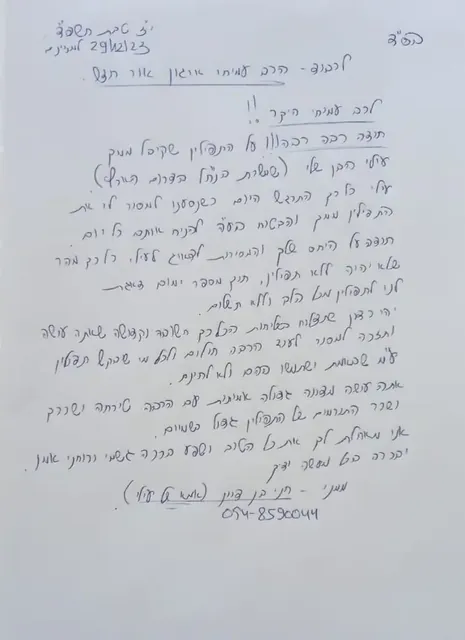 בס״ד
י״ז טבת תשפ״ד
29/12/23 למניינם
לכבוד - הרב עמיחי ארגון אור חדש.
לרב עמיחי היקר !!
תודה רבה רבה!!! על התפילין שקיבל ממך
עילי הבן שלי (שמשרת בנח"ל בדרום הארץ)
עילי כל כך התרגש היום כשנסענו למסור לו את
התפילין ממך והבטיח בעז״ה להניח אותם כל יום.
תודה על היחס שלך והמסירות לדאוג לעילי, כל כך מהר
שלא יהיה ללא תפילין, תוך מספר ימים דאגת
לנו לתפילין מכל הלב וללא תשלום.
יהי רצון שתצליח בשליחות הכל כך חשובה וקדושה שאתה עושה
ותזכה למסור לעוד הרבה חיילים ולכל מי שמבקש תפילין
ע״מ שבאמת ישתמשו בהם ולא לחינם.
אתה עושה מצווה גדולה אמיתית עם הרבה טירחה ישר כך
ושכר התורמים של התפילין גדול בשמיים.
אני מאחלת לך את כל הטוב ושפע ברכה גשמי ורוחני אמן.
וברכה בכל מעשה ידיך
ממני - חני בן (אמא של עילי)
054-8590044